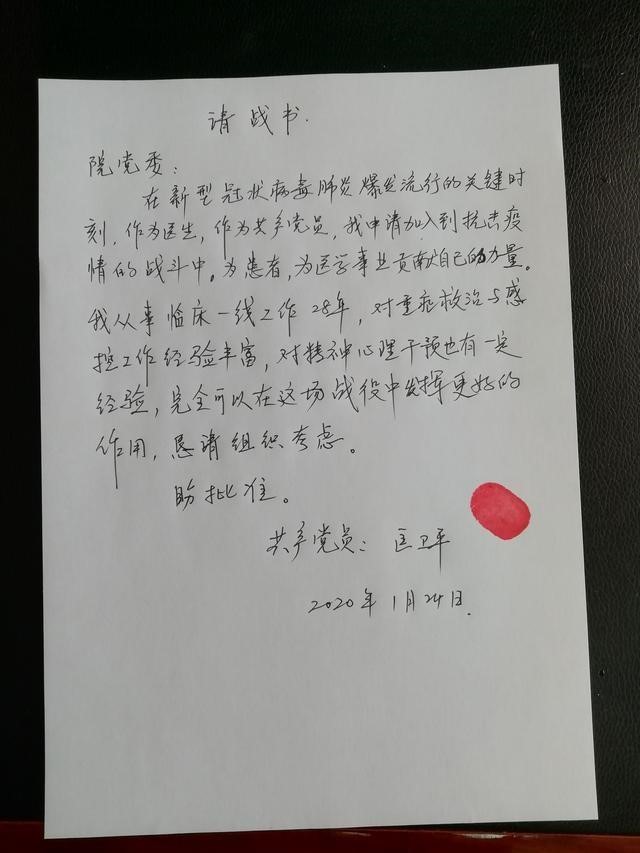 请战书.
院党委:
在新型冠状病毒肺炎爆发流行的关键时
刻, 作为医生, 作为共产党员, 我申请加入到抗击疫
情的战斗中。为患者, 为医学事业贡献自己的力量。
我从事临床一线工作28年, 对重症救治与感
控工作经验丰富, 对精神心理干预也有一定
经验, 完全可以在这场战役中发挥更好的
作用, 恳请组织考虑。
盼批准。
共产党员: 匡卫平
2020年1月24日.